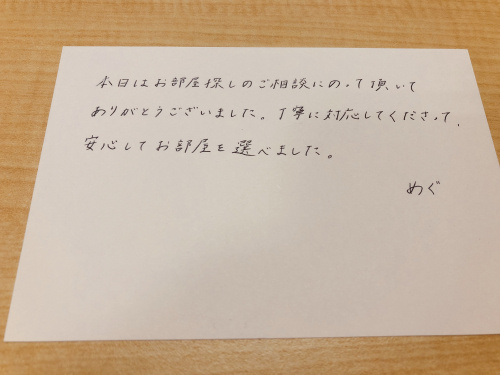 本日はお部屋探しのご相談にのって頂いて
ありがとうございました。丁寧に対応してくださって、
安心してお部屋を選べました。
めぐ